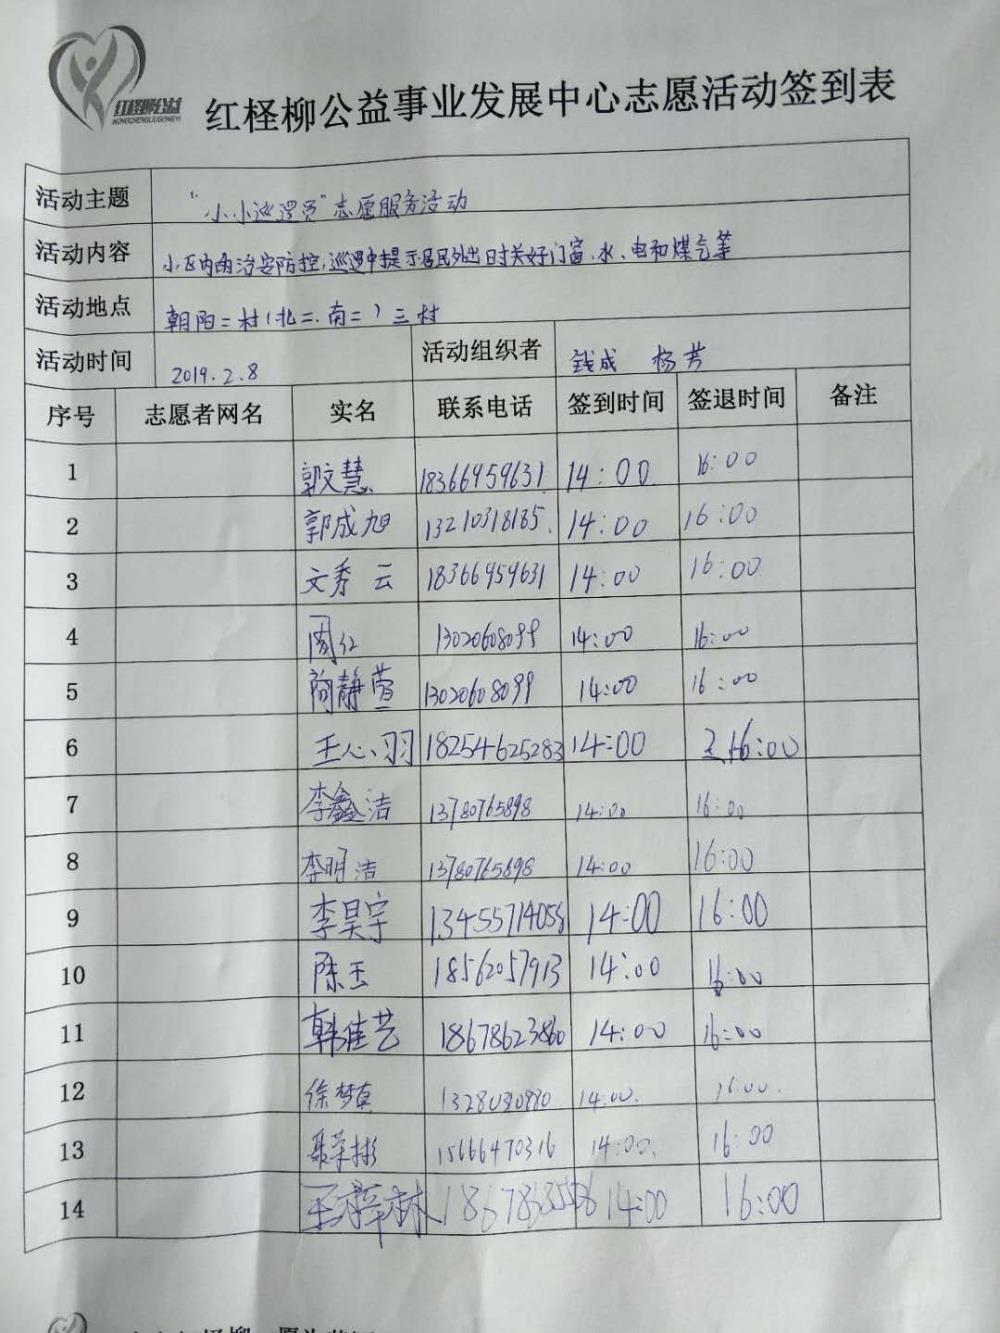 红柽柳公益
HONGCHENGLIUGONGYI
红柽柳公益事业发展中心志愿活动签到表
活动主题 “小小巡逻员”志愿服务活动
活动内容 小区内的治安防控,巡逻中提示居民外出时关好门窗、水、电和煤气等
活动地点 朝阳二村(北二.南二)三村
活动时间 2019.2.8 活动组织者 钱成 杨芳
序号 志愿者网名 实名 联系电话 签到时间 签退时间 备注
1 郭文慧 18366959631 14:00 16:00
2 郭成旭 13210318185. 14:00 16:00
3 文秀云 18366959631 14:00 16:00
4 周红 13020608099 14:00 16:00
5 静萱 13020608099 14:00 16:00
6 王心羽 18254625283 14:00 16:00
7 李鑫洁 13780765898 14:00 16:00
8 李明洁 13780765898 14:00 16:00
9 李昊宇 13455714058 14:00 16:00
10 陈玉 18562057913 14:00 16:00
11 韩佳艺 18678623860 14:00 16:00
12 徐梦真 14:00. 16:00.
13 聂荣彬 15666470316 14:00. 16:00
14 王梓林 14:00 16:00